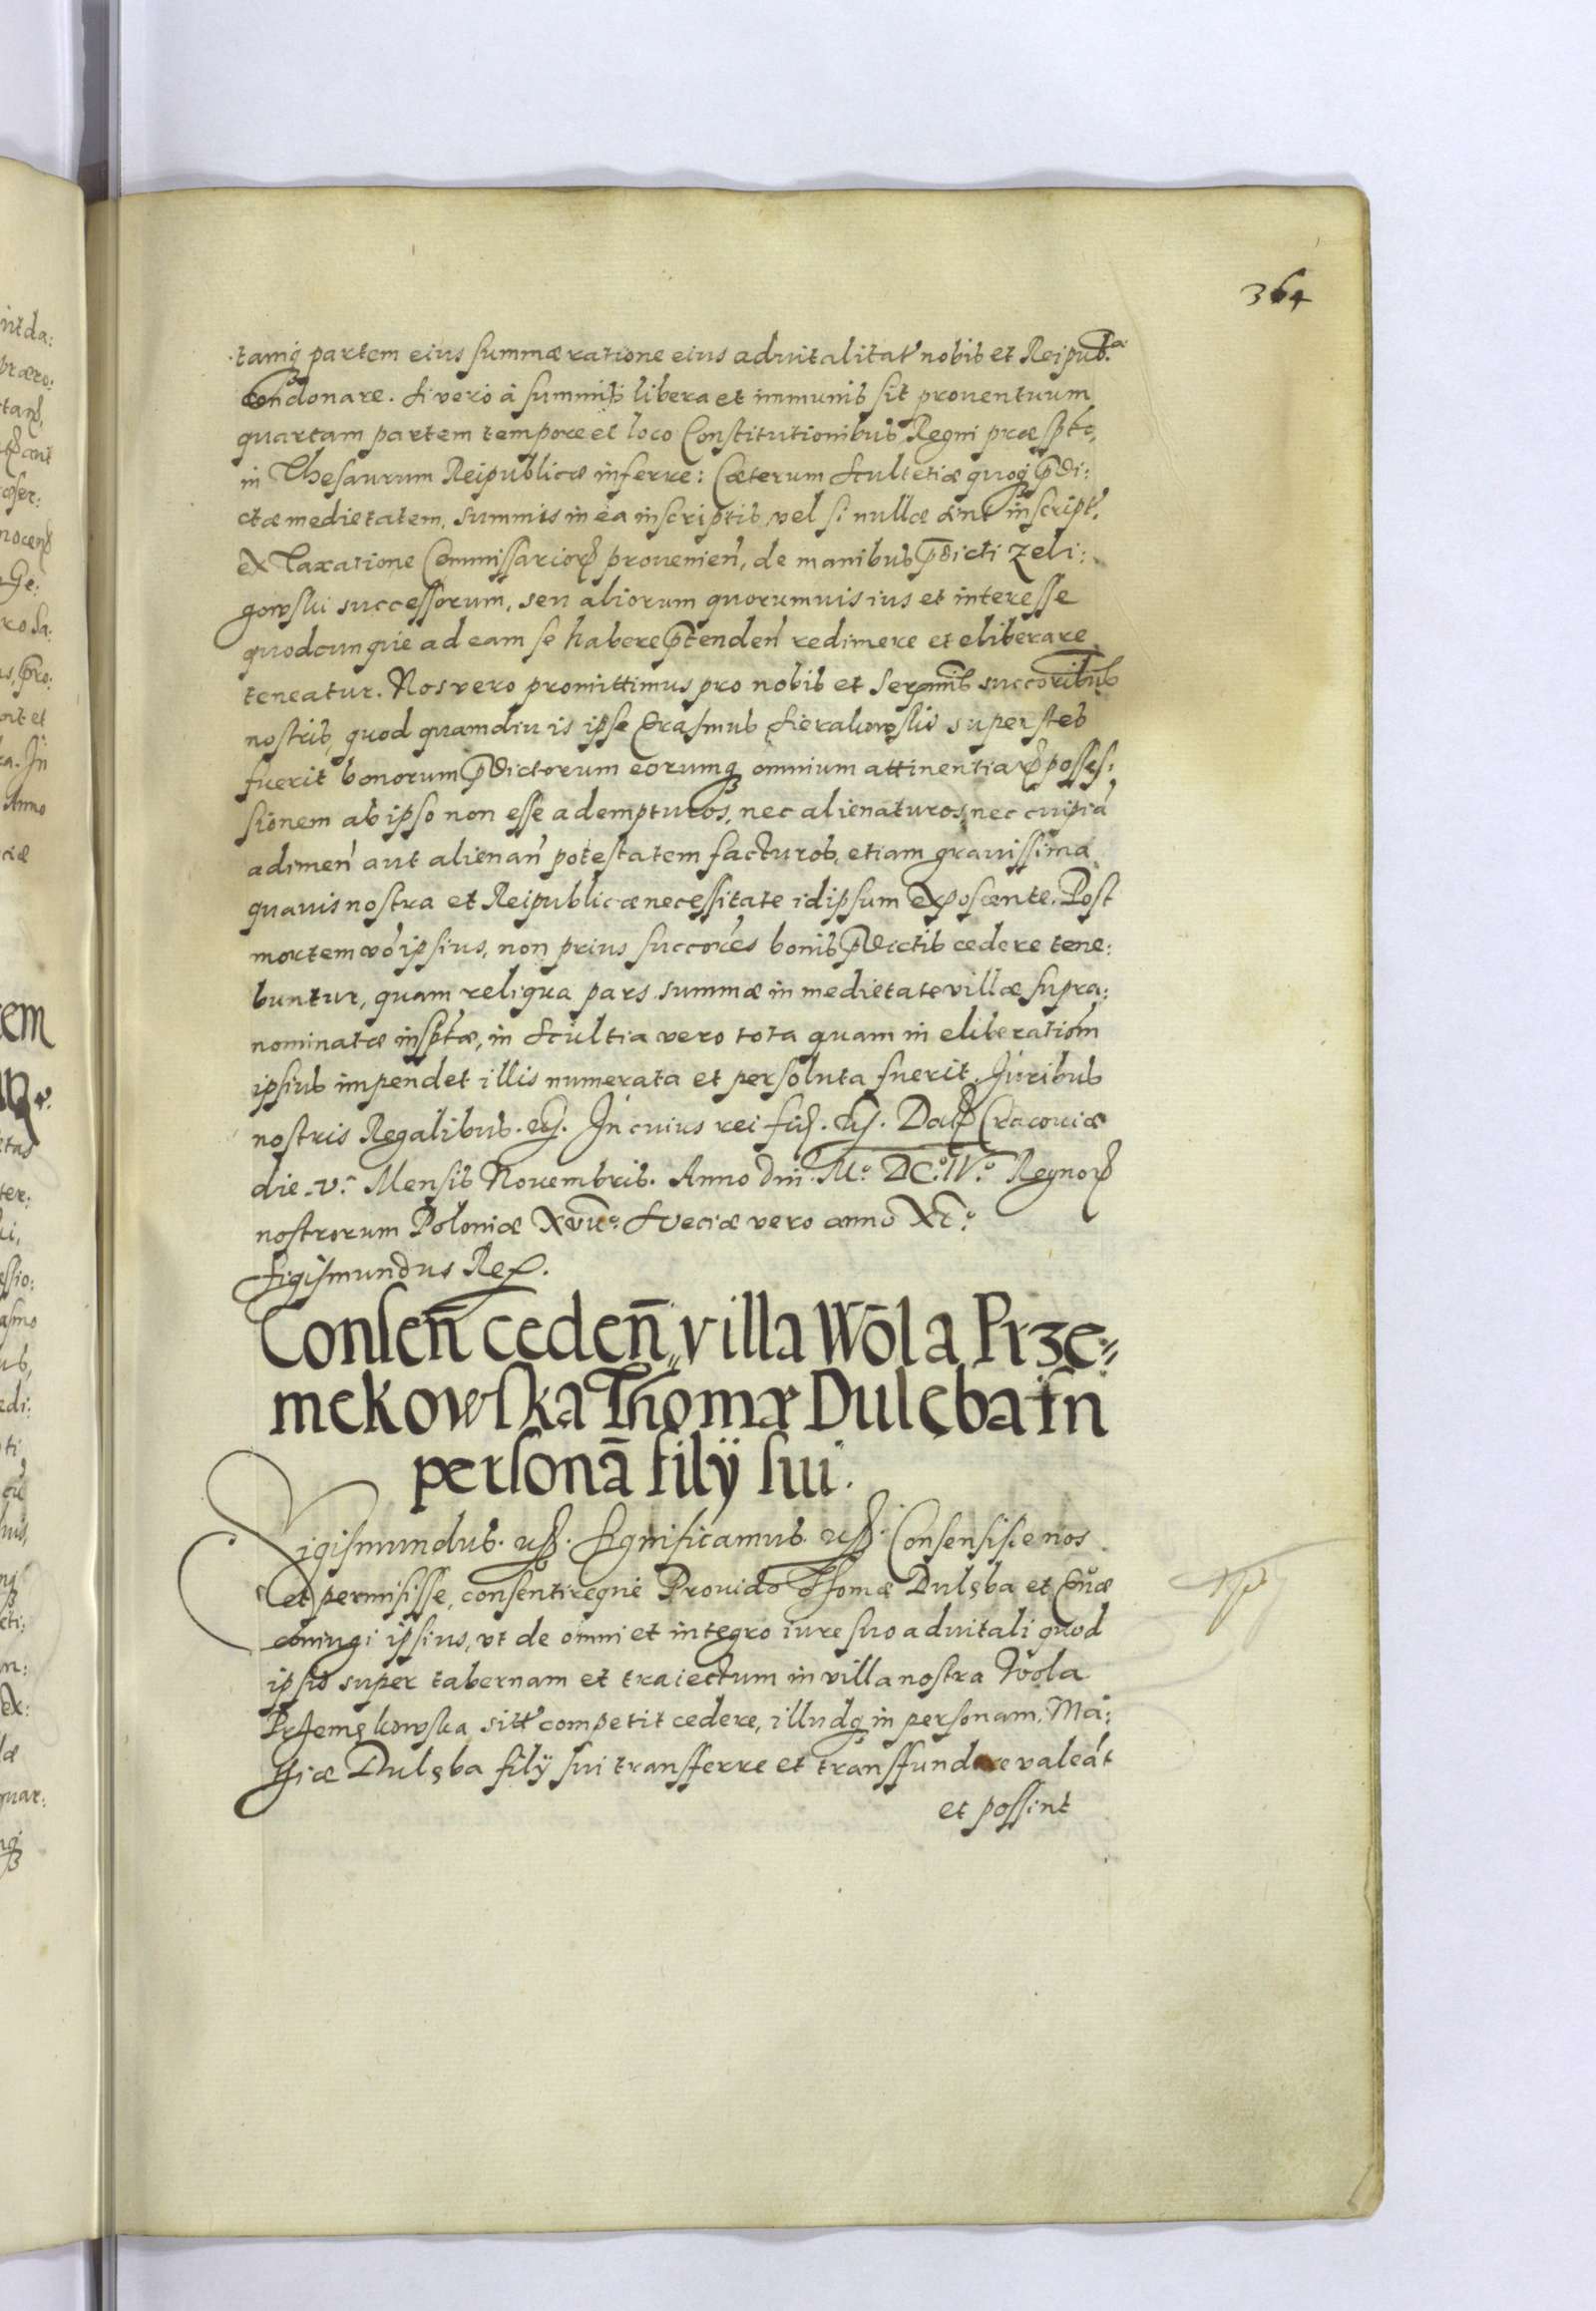 364
tamq partem eius summæ ratione eius aduitalitat nobis et Reipub.
Condonare. Si vero à summis libera et immunis sit prouentuum
quartam partem tempore et loco Constitutionibus Regni præsptо,
in Thesaurum Reipublicæ inferre: Cæterum Scultetiæ quoq prdi:
ctæ medietatem, summis in ea inscriptis, vel si nullæ sint inscript.
ex Taxatione Commissarior prouenien, de manibus pdicti Zeli:
gowski successorum, seu aliorum quorumuis ius et interesse
quodcunque ad eam se habere ptenden redimere et eliberare
teneatur. Nos vero promittimus pro nobis et Sermis succoribus
nostris, quod quamdiu is ipse Erasmus Sierakowski superstes
fuerit bonorum pdictorum eorumq omnium attinentiar posses:
sionem ab ipso non esse adempturos, nec alienaturos, nec cuipiā
adimen aut alienan potestatem facturos, etiam grauissima
quauis nostra et Reipublicæ necessitate idipsum exposcente. Post
mortem vo ipsius, non prius succores bonis pdictis cedere tene:
buntur, quam reliqua pars summæ in medietate villæ supra:
nominatæ insptæ, in Scultia vero tota quam in eliberationem
ipsius impendet illis numerata et persoluta fuerit. Juribus
nostris Regalibus. etc. In cuius rei fid. etc. Dat Cracouiæ
die .v. Mensis Nouembris. Anno Dni M.º DC.º IV.º Regnor
nostrorum Poloniæ XVIIº. Sveciæ vero anno XIº.
Sigismundus Rex.
Consen̄ ceden̄ villa Wola Prze=
mekowska Thomæ Dulęba in
personā filÿ sui.
Sigismundus. etc. Significamus. etc. Consensisse nos
et permisisse, consentireque Prouido Thomæ Dulęba et Euæ
coniugi ipsius, vt de omni et integro iure suo aduitali quod
ipsis super tabernam et traiectum in villa nostra Wola
Przemękowska sitt competit cedere, illudq in personam Ma:
thiæ Dulęba filÿ sui transferre et transfundere valeāt
et possint